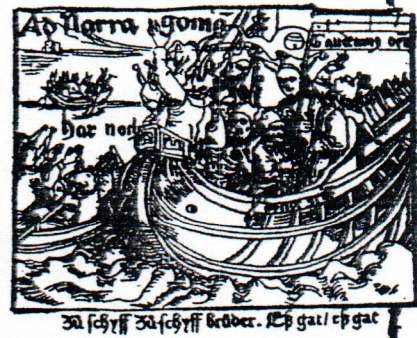 Ad Narragoniā
har noch
Zů schyff Zů schyff brůder. Eß gat/ eß gat